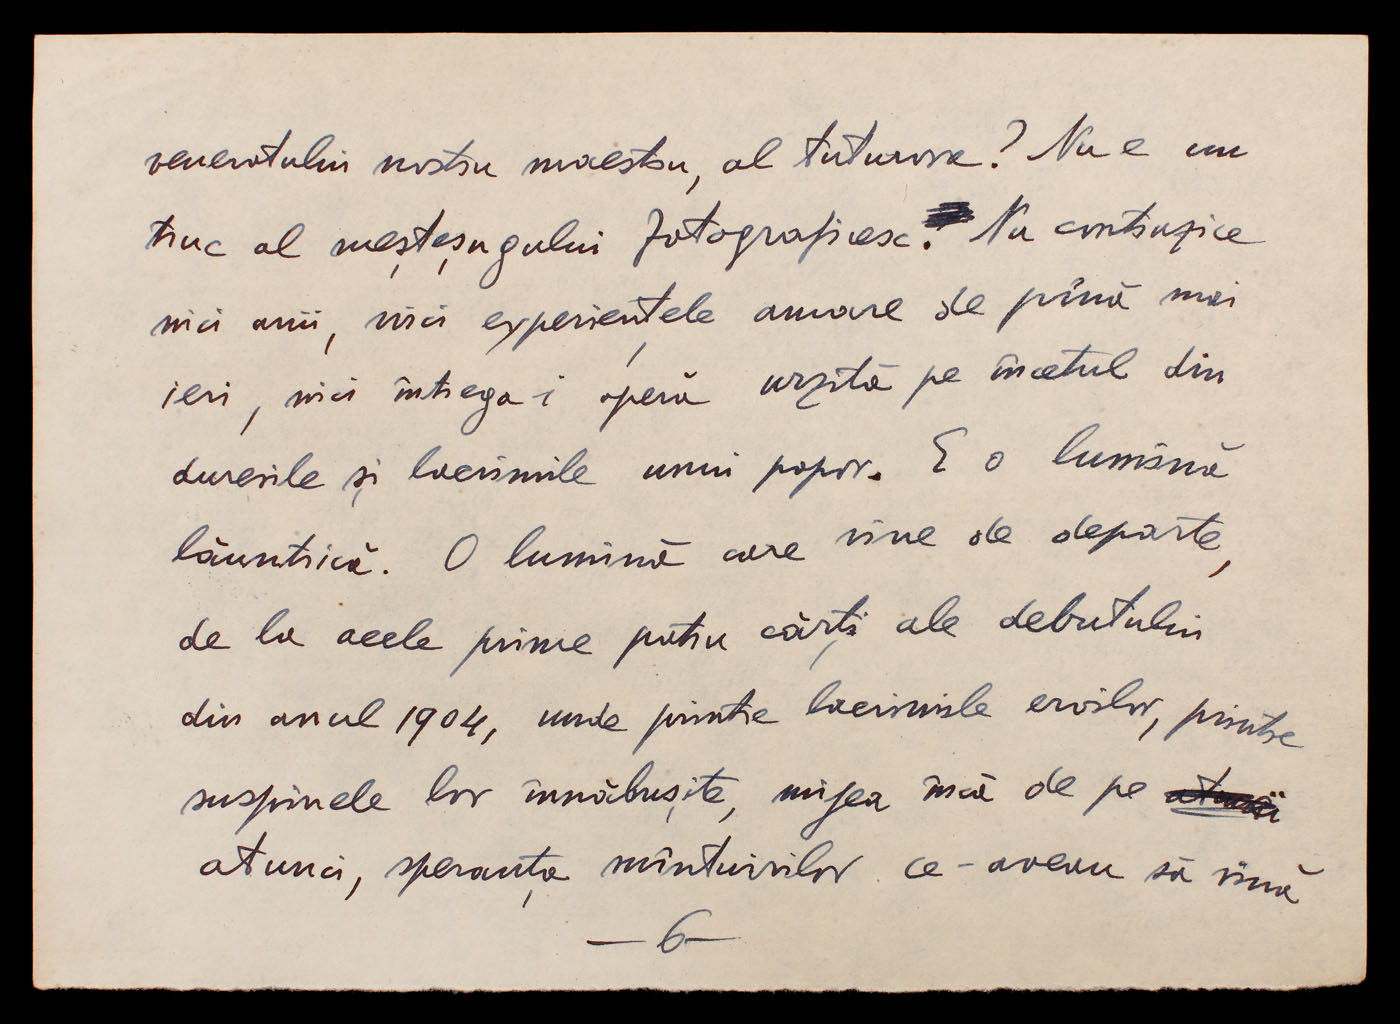 veneratului nostru maestru, al tuturora? Nu e un
truc al meșteșugului fotograficesc. Nu contrazice
nici anii, nici experiențele amare de pînă mai
ieri, nici întrega-i operă urzită pe încetul din
durerile și lacrimile unui popor. E o lumină
lăuntrică. O lumină care vine de departe,
de la acele prime patru cărți ale debutului
din anul 1904, unde printre lacrimile eroilor, printre
suspinele lor înnăbușite, mijea încă de pe
atunci, speranța mîntuirilor ce-aveau să vină
—6—